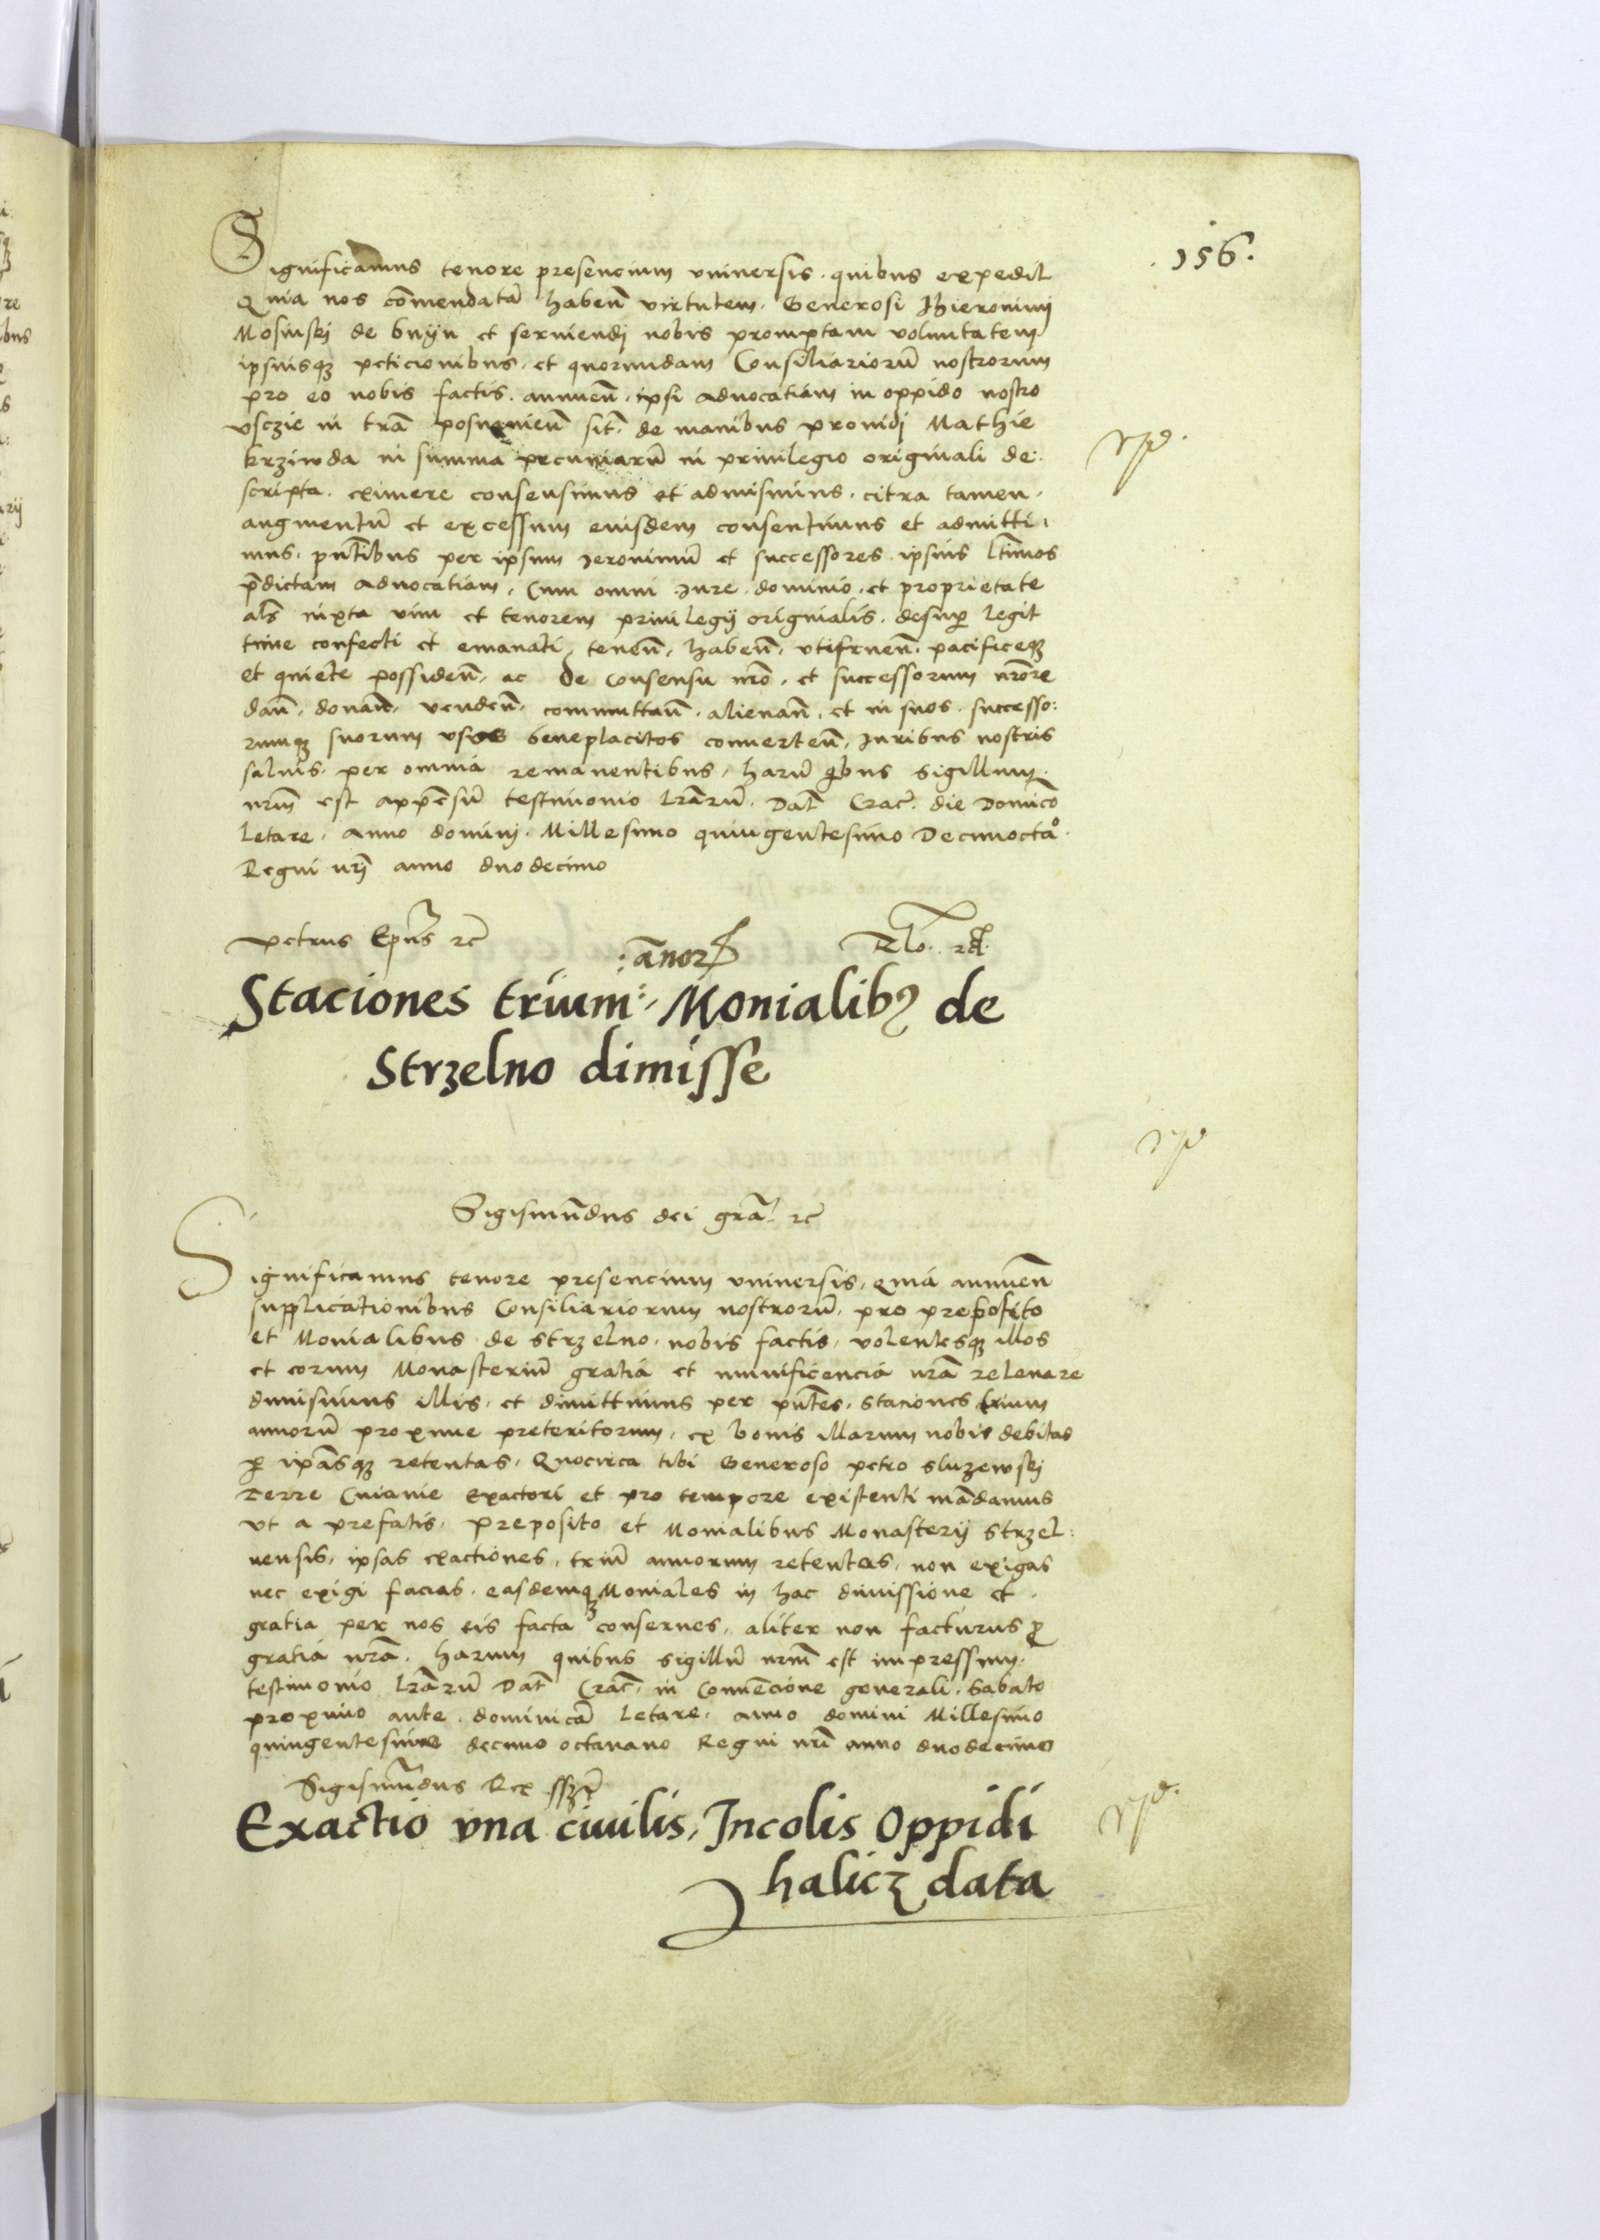 156.
Significamus tenore presencium vniuersis. quibus expedit
Quia nos cōmendatā habeñ virtutem. Generosi Jhieronimi
Mosinskj de bnijn et seruiendj nobis promptam voluntatem
ipsiusqꝫ peticionibus. et quorundam Consiliariorū nostrorum
pro eo nobis factis. annueñ. ipsi aduocatiam in oppido nostro
vsczie in trā posnanieñ sit̄. de manibus prouidj Mathie
krziwda in summa pecuniarū in priuilegio originali de:
scripta. eximere consensimus et admisimus. citra tamen.
augmentū et excessum eiusdem consentimus et admitti:
mus. pn̄tibus per ipsum Jeronimū et successores ipsius ltīmos
p̄dictam aduocatiam. Cum omni Jure. dominio. et proprietate
als̄ iuxta vim et tenorem priuilegij originalis. desuꝑ legit
time confecti et emanati, teneñ, habeñ, vtifrueñ. pacificeqꝫ
et quiete possideñ. ac de consensu nr̄o. et successorum nr̄ore
dañ. donañ. vendeñ. commuttañ. alienañ. et in suos. successo:
rumqꝫ suorum vsos beneplacitos conuerteñ. Juribus nostris
saluis. per omnia remanentibus. harū qībus sigillum
nrm̄ est appēsū testimonio lrārū. Dat̄ Crac̄. die Domīco
letare. anno dominj. Millesimo quingentesimo Decimoctaº.
Regni nrj̄ anno duodecimo
Petrus Ep̄us ꝛc̄ Rlo. ꝛd.
:ānorꝝ
Staciones trium:, Monialibꝰ de
Strzelno dimisse
Sigismūdus dei grā. ꝛc̄
Significamus tenore presencium vniuersis. quia annueñ
supplicationibus Consiliariorum nostrorū. pro preposito
et Monialibus de strzelno. nobis factis. volentesqꝫ illos
et eorum Monasteriū gratia et munificencia nrā releuare
dimisimus illis. et dimittimus per pn̄tes. staciones trium
annorū proxime preteritorum. ex bonis illarum nobis debitas
ꝑ ipāsqꝫ retentas. Quocirca tibi Generoso petro sluzewskj
Terre Cuiauie Exactori et pro tempore existenti mādamus
vt a prefatis. Preposito et Monialibus Monasterij strzel:
nensis. ipsas exactiones. triū annorum retentas. non exigas
nec exigi facias. easdemqꝫ Moniales in hac dimissione et.
gratia per nos eis facta conserues. aliter non facturus ꝓ
gratia nrā. harum quibus sigillū nrm̄ est impressum.
testimonio lrārū Dat̄ Crac̄. in Conuēcione generali. Sabato
proximo ante. dominicā letare. anno domini Millesimo
quingentesimo decimo octauano Regni nrī anno duodecimo
Sigismūdus Rex sszt̄
Exactio vna ciuilis, Incolis Oppidi
halicz data